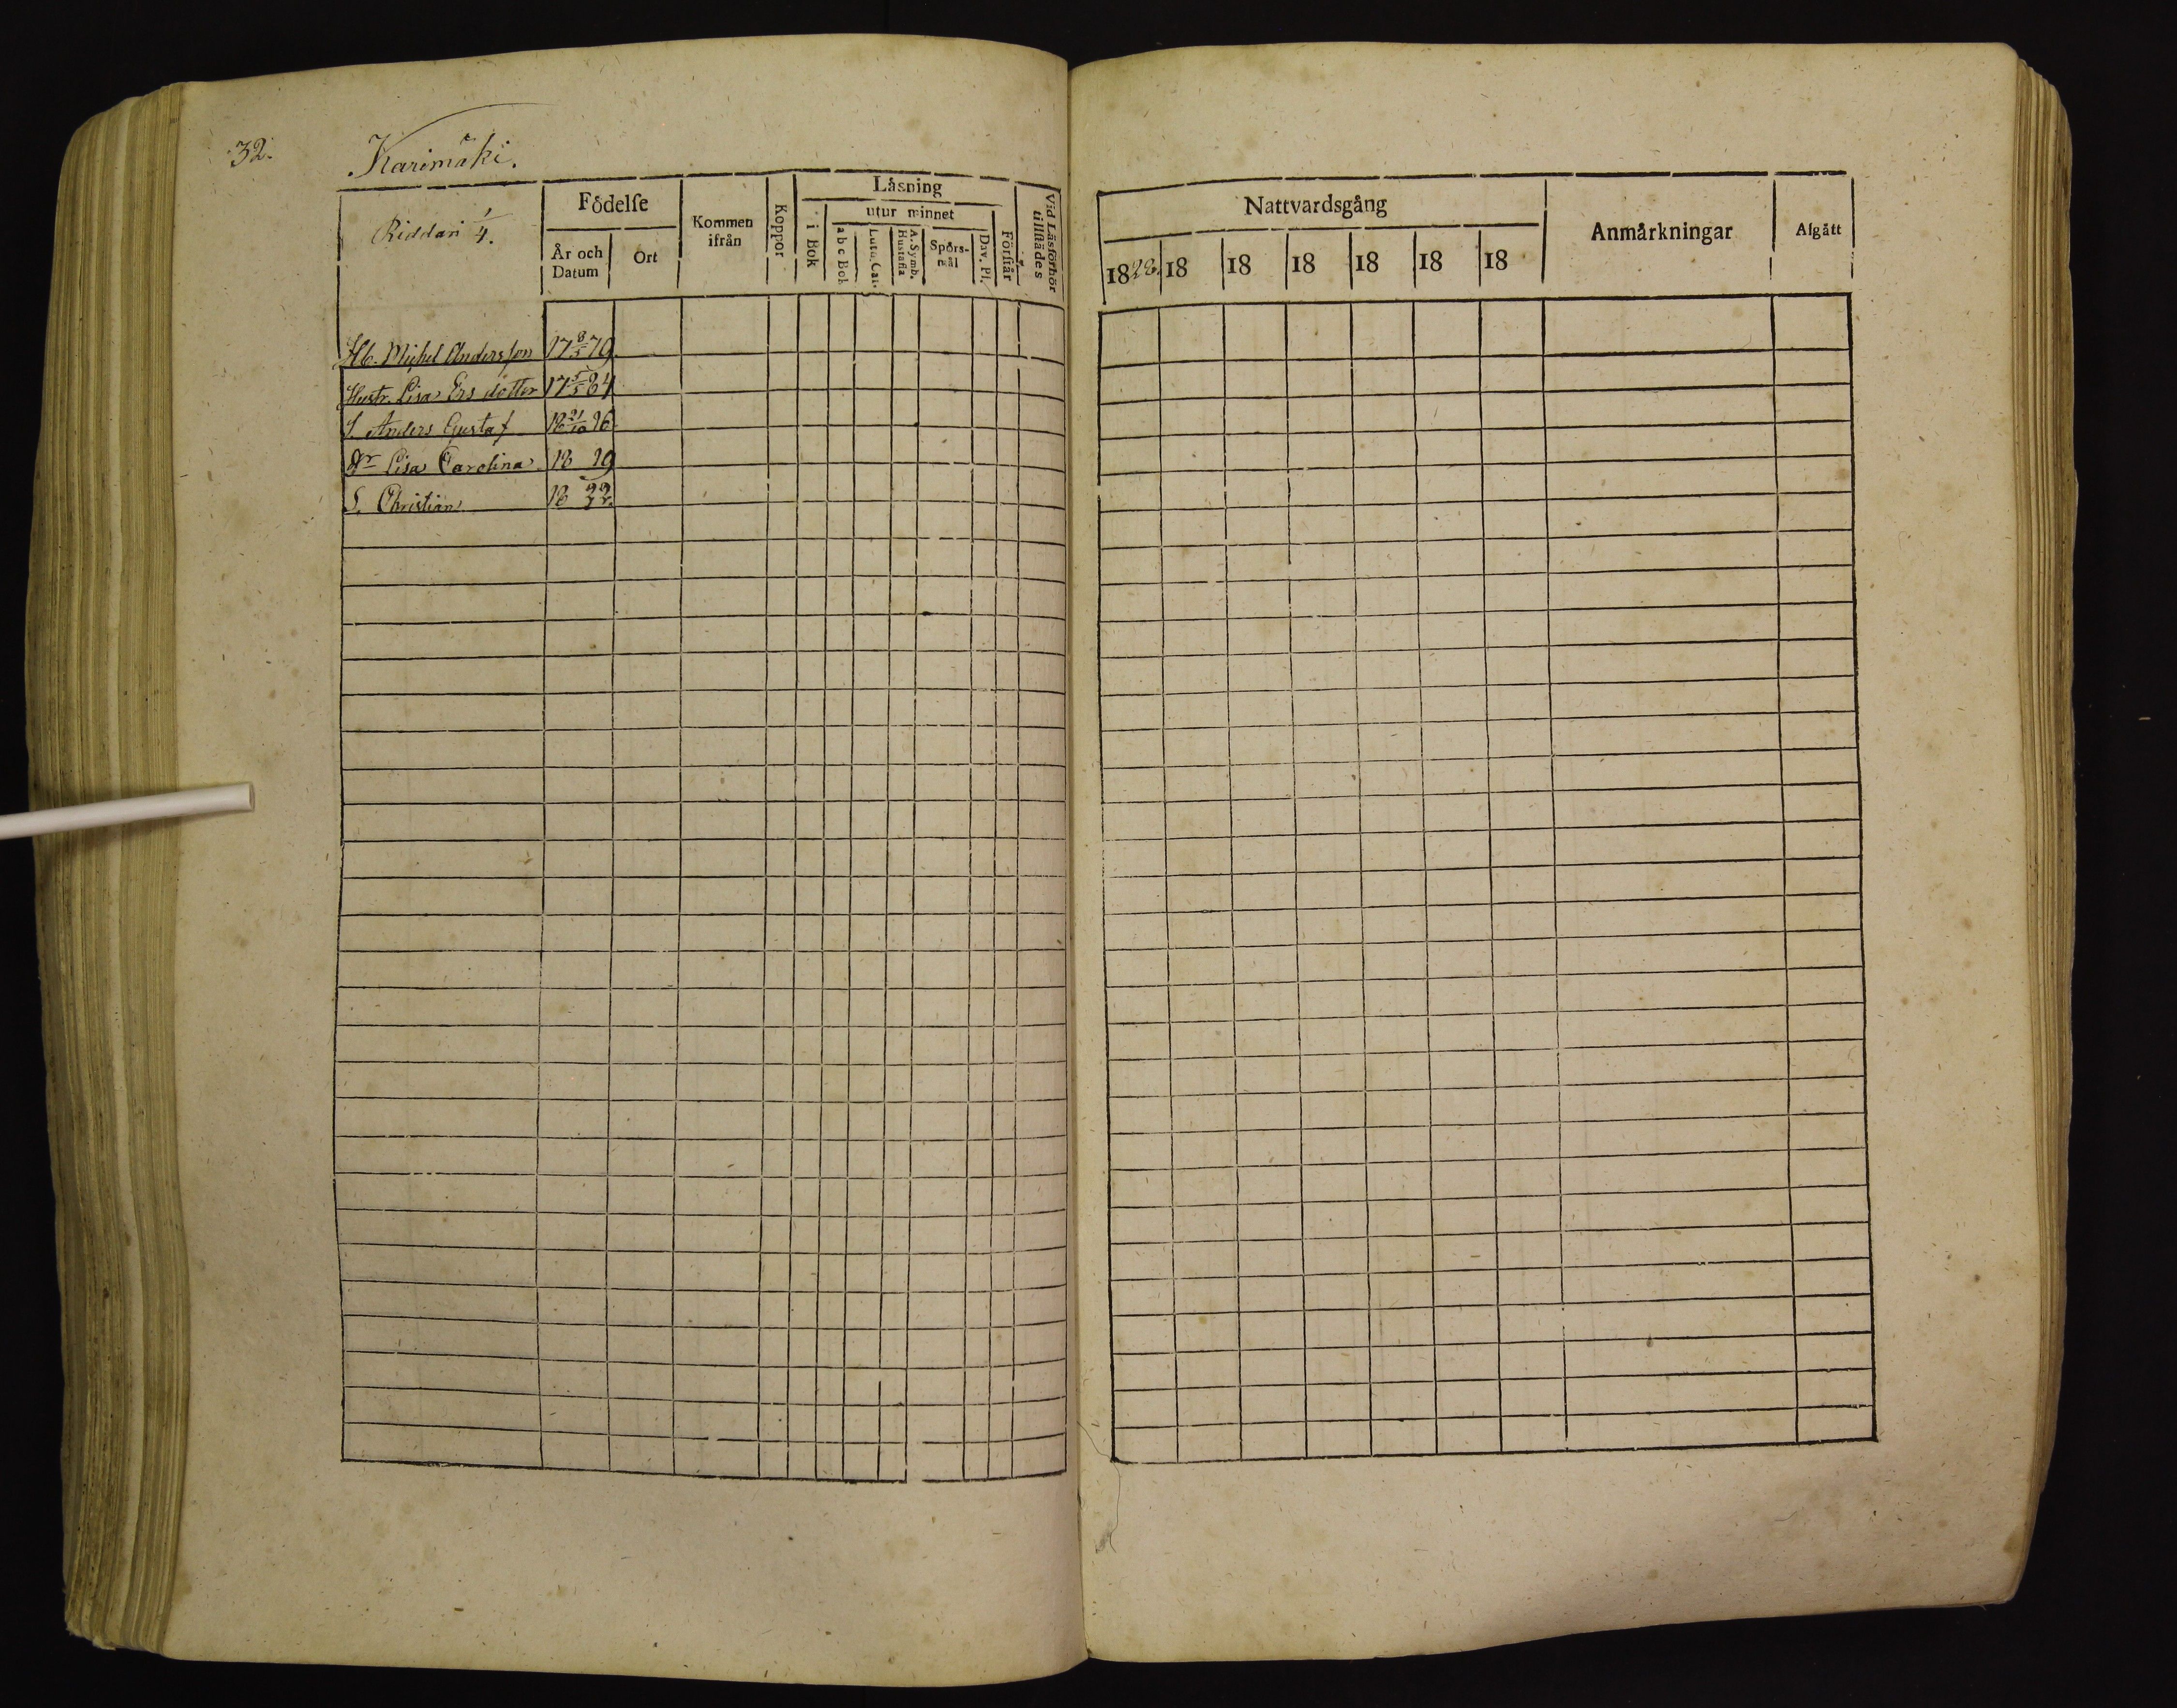 32.
Karimäki.
Riddari 1/4.
Födelse
År och Datum
Ort
Kommen ifrån
Koppor
Läsning
i Bok
utur minnet
a b c Bok
Luth. Cat.
A. Symb. Hustafla
Spörsmål
Dav. Ps.
Förstår
Vid Läsförhör tillstädes
Nattvardsgång
1828. 18 18 18 18 18 18
Anmärkningar
Afgått
Hb. Michel Andersson 17 8/5 79
Hustr. Lisa Ersdotter 17 5/5 84
S. Anders Gustaf 18 21/10 16.
Dr Lisa Carolina 18 19
S. Christian 18 22.